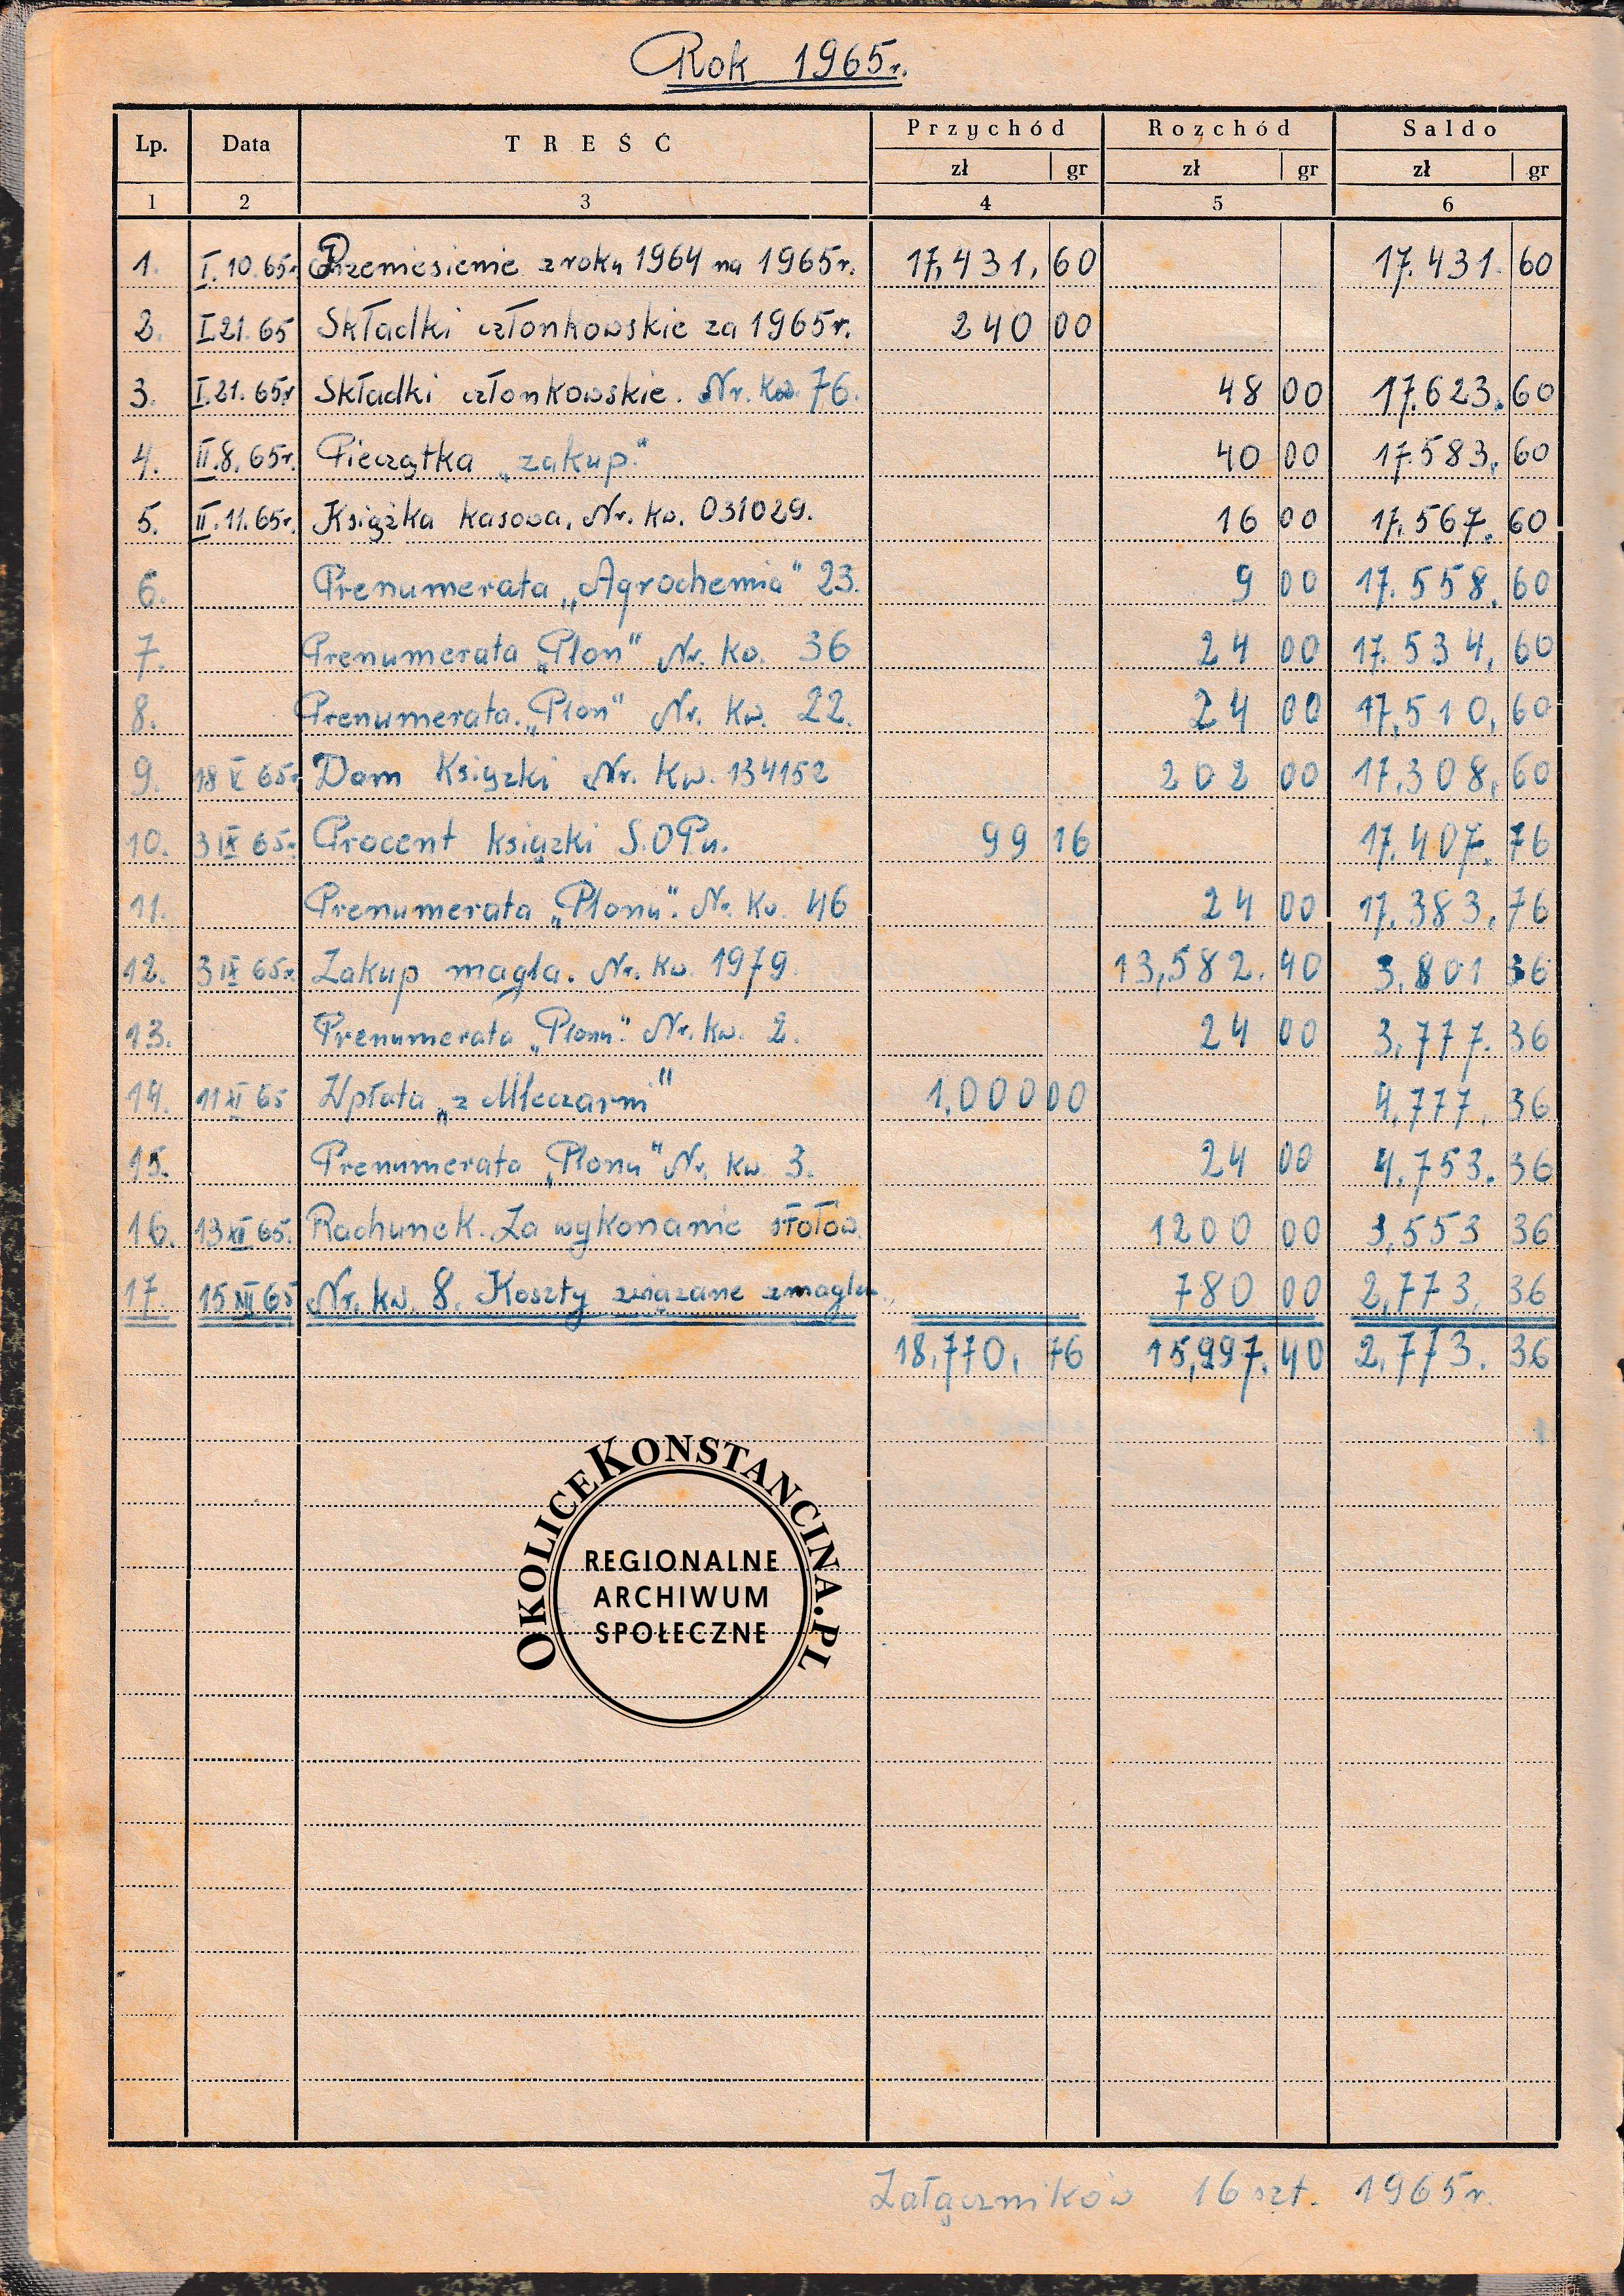 Rok 1965r.
Lp. Data TREŚĆ Przychód Rozchód Saldo
zł gr zł gr zł gr
1 2 3 4 5 6
1. I.10.65r Przeniesienie z roku 1964 na 1965r. 17,431,60 17.431.60
2. I.21.65 Składki członkowskie za 1965r. 240 00
3. I.21.65r Składki członkowskie. Nr. kw. 76. 48 00 17.623.60
4. II.8.65r. Pieczątka „zakup." 40 00 17.583,60
5. II.11.65r. Książka kasowa, Nr. kw. 031029. 16 00 17.567.60
6. Prenumerata „Agrochemia" 23. 9 00 17.558.60
7. Prenumerata „Plon" Nr. kw. 36 24 00 17.534,60
8. Prenumerata. „Plon" Nr. kw. 22. 24 00 17,510,60
9. 18 V 65r Dom Książki Nr. kw. 134152 202 00 17.308,60
10. 3 IX 65r. Procent książki S.O.P.u. 99 16 17.407.76
11. Prenumerata „Plonu". Nr. kw. 46 24 00 17.383,76
12. 3 IX 65r. Zakup magla. Nr. kw. 1979. 13,582.40 3.801 36
13. Prenumerata „Plonu". Nr. kw. 2. 24 00 3.777.36
14. 11 XI 65 Wpłata „z Mleczarni" 1.000 00 4.777.36
15. Prenumerata „Plonu" Nr. kw. 3. 24 00 4.753.36
16. 13 XI 65. Rachunek. Za wykonanie stołów. 1200 00 3,553 36
17. 15 XII 65 Nr. kw. 8. Koszty związane z maglem 780 00 2,773,36
18,770,76 15,997.40 2,773.36
OKOLICEKONSTANCINA.PL
REGIONALNE
ARCHIWUM
SPOŁECZNE
Załączników 16 szt. 1965r.